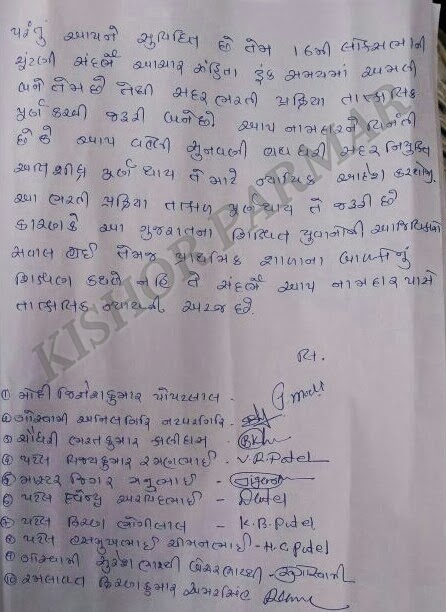 પરંતું આપને સુવિદિત છે તેમ 16મી લોકસભાની
ચુંટણી સંદર્ભે આચાર સંહિતા ટુંક સમયમાં અમલી
બને તેમ છે તેથી સદર ભરતી પ્રક્રિયા તાત્કાલિક
પુર્ણ કરવી જરૂરી બને છે. આપ નામદારને વિનંતી
છે કે આપ વહેલી સુનવણી હાથ ધરી સદર નિયુક્તિ
અતિશીઘ્ર પુર્ણ થાય તે માટે ન્યાયિક આદેશ કરશોજી
આ ભરતી પ્રક્રિયા તાત્કાલ પુર્ણ થાય તે જરૂરી છે
કારણકે આ ગુજરાતના શિક્ષિત યુવાનોની આજીવિકાનો
સવાલ હોઈ તેમજ પ્રાથમિક શાળાના બાળકોનું
શિક્ષણ કથળે નહિ તે સંદર્ભે આપ નામદાર પાસે
તાત્કાલિક ન્યાયની અરજ છે.
લિ.
① મોદી જિજ્ઞેશકુમાર પોપટલાલ -
② ગૌસ્વામી અનિલગિરિ નટવરગિરિ -
③ ચૌધરી ભરતકુમાર કાલીદાસ -
④ પટેલ વિજયકુમાર રમણભાઈ - V.R.Patel
⑤ માસ્ટર જિગર મનુભાઈ -
⑥ પટેલ અરવિંદભાઈ -
⑦ પટેલ કિરણ ભોગીલાલ - K.B.Patel
⑧ પટેલ હસમુખભાઈ ચીમનભાઈ - H.C.Patel
⑨ ગૌસ્વામી સુરેશભારથી
⑩ કિરણકુમાર અમરસિંહ
KISHOR PARMAR